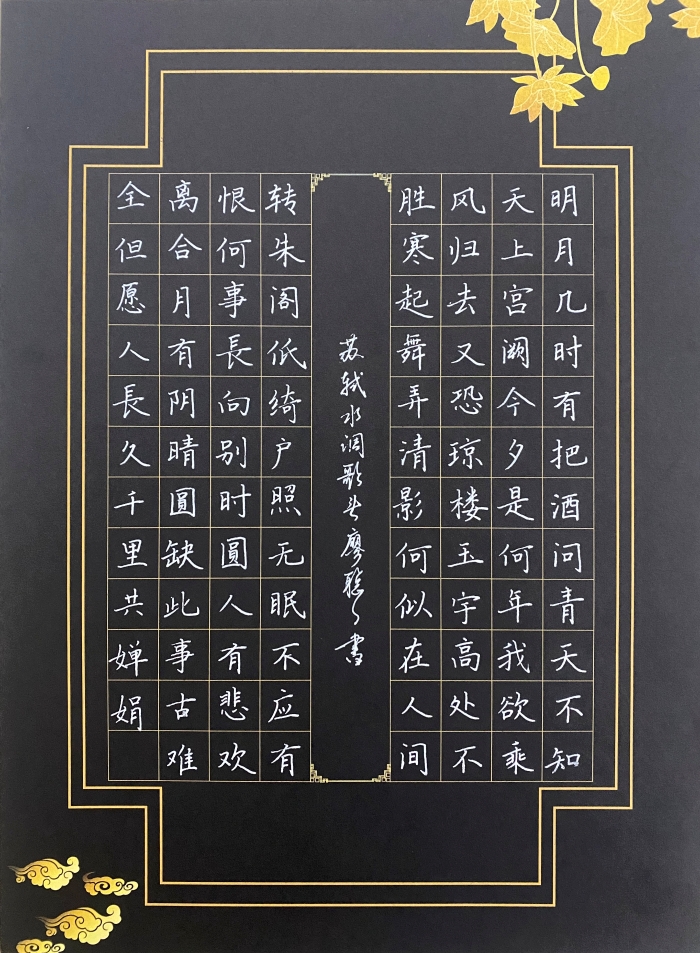 明月几时有把酒问青天不知
天上宫阙今夕是何年我欲乘
风归去又恐琼楼玉宇高处不
胜寒起舞弄清影何似在人间
苏轼水调歌头廖聪々書
转朱阁低绮户照无眠不应有
恨何事長向别时圓人有悲欢
离合月有阴晴圓缺此事古难
全但愿人長久千里共婵娟